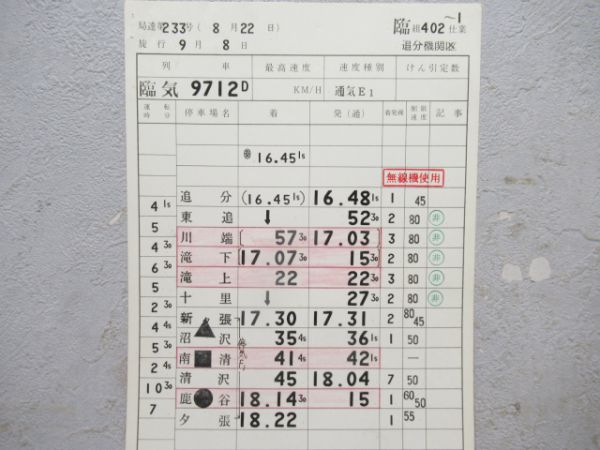 局達第233号(8月22日)
施行 9月8日
臨 組402仕業 ~1
追分機関区
列車 最高速度 速度種別 けん引定数
臨気9712D KM/H 通気E1
運転時分 停車場名 着 発(通) 着発線 制限速度 記事
16.45 1s
無線機使用
追分 (16.45 1s) 16.48 1s 1 45
4 1s
東追 ↓ 52 30 2 80 非
5
川端 57 30 17.03 3 80 非
4 30
滝下 17.07 30 15 30 2 80 非
6 30
滝上 22 22 30 3 80 非
5
十里 ↓ 27 30 2 80 非
2
新張 17.30 17.31 2 80 45
4 4s
沼沢 35 4s 36 1s 1 50
5
南清 41 4s 42 1s —
2 4s
清沢 45 18.04 7 50
10 30
鹿谷 18.14 30 15 1 60 50
7
夕張 18.22 1 55